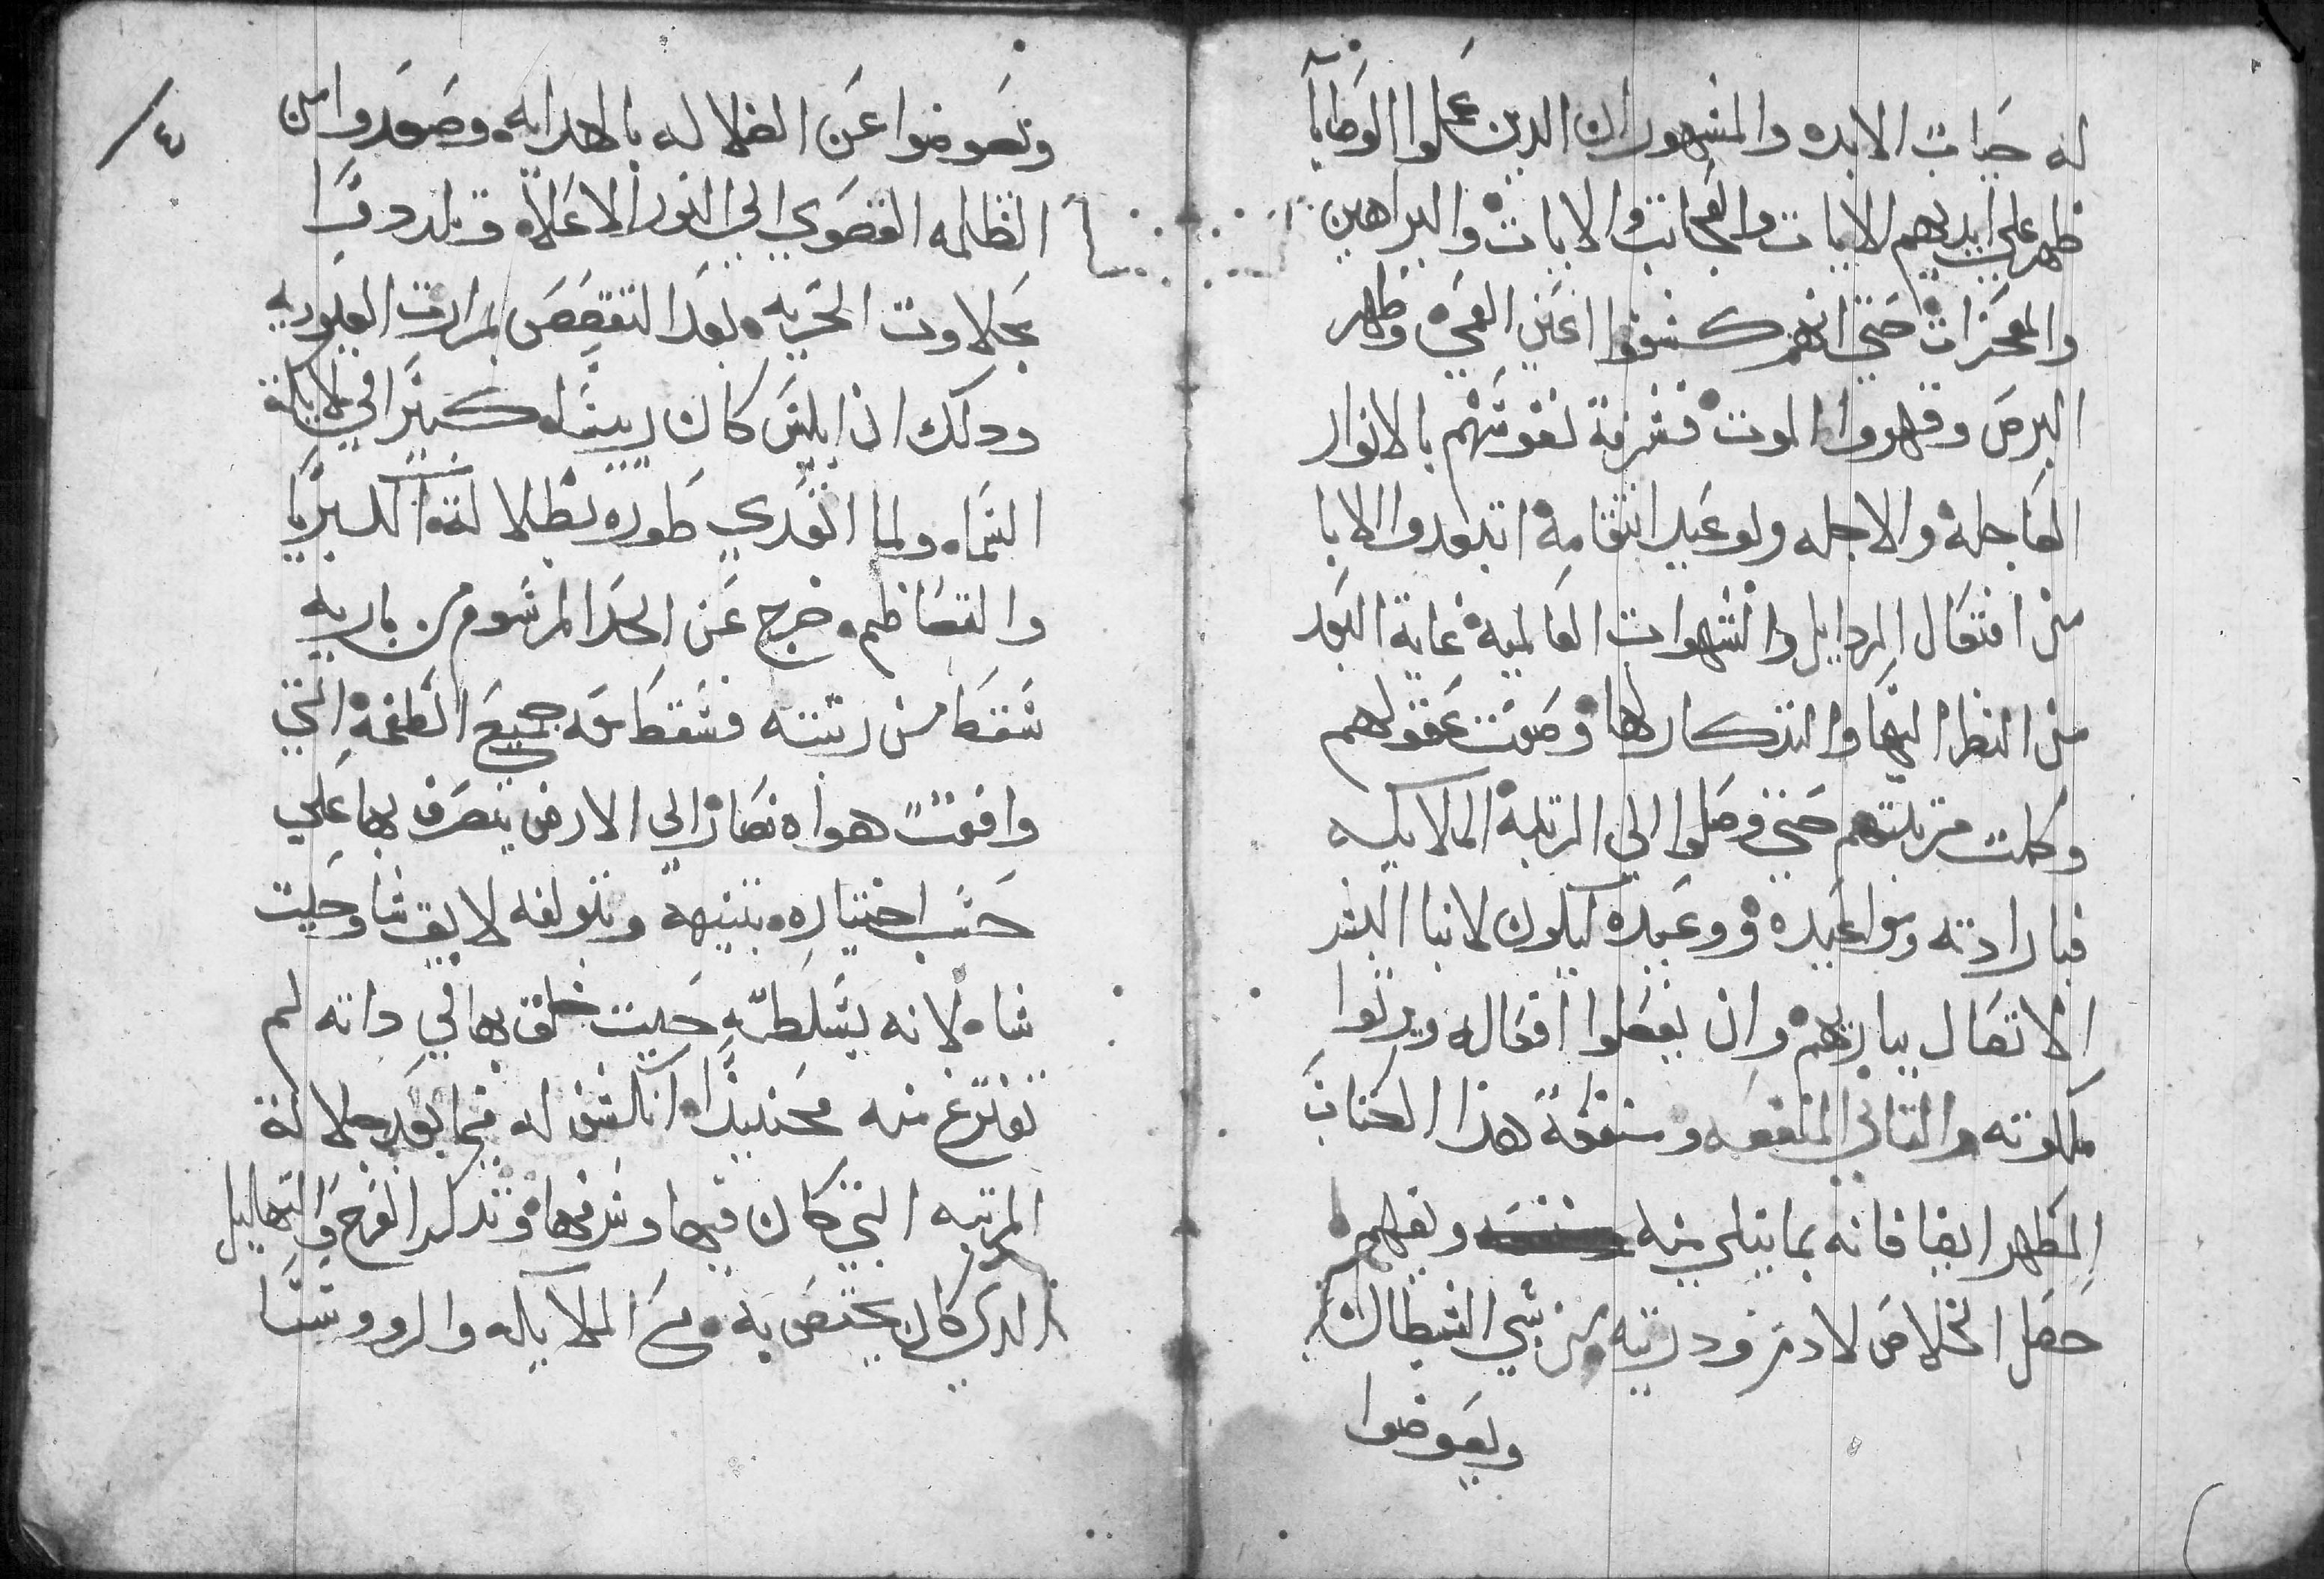 له حيات الابده والمشهور ان الدين عملوا الوصايا
ظهر على ايديهم الايات والعجايب والايات والبراهين
والمعجزات حتى انهم كشفوا اعين العمي وطهر
البرص وقهروا الموت فشرفة نفوسهم بالانوار
العاجله والاجله ولوعيد انتقامه ابتعدوا الابا
من افتعال الردايل والشهوات العالميه غاية البعد
من النظر اليها والتذكار لها وصفت عقولهم
وكملت مرتبتهم حتى وصلوا الي المرتبه الملايكيه
فبارادته ومواعيده ووعيده ليكون لانبا البشر
الاتصال بباريهم وان يفعلوا افعاله ويرثوا
ملكوته والتاني المنفعه ومنفعة هذا الكتاب
المطهر ايضا فانه بما يتلى منه ويفهم
حصل الخلاص لادم ودريته من سبي الشيطان
ويعوضوا
وتعوضوا عن الضلاله بالهدايه وصعدوا من
الظلمه القصوي الي النور الاعلاه وتلددوا
بحلاوت الحريه بعد التغصص بمرارت العبوديه
ودلك ان ابليس كان رييسًا كبيرا في ملايكة
السماء ولما اتعدي طوره بطلالته الكبريا
والتعاظم خرج عن الحد المرسوم من باريه
سقط من رتبته فسقط معه جميع الطغمة التي
وافقت هواه فصار الي الارض يتصرف بها علي
حسب اختياره بتنبيهه وتولفه لايق شا وحيت
شاه لانه يتسلطنه حيت خلق بها في داته لم
تفترع منه فحينيدًا انكشف له فيما بعد جلالة
المرتبه التي كان فيها وشرفها وتدكر الفرح والتهاليل
الدي كان يختص به مع الملايكه والرووسا
٤